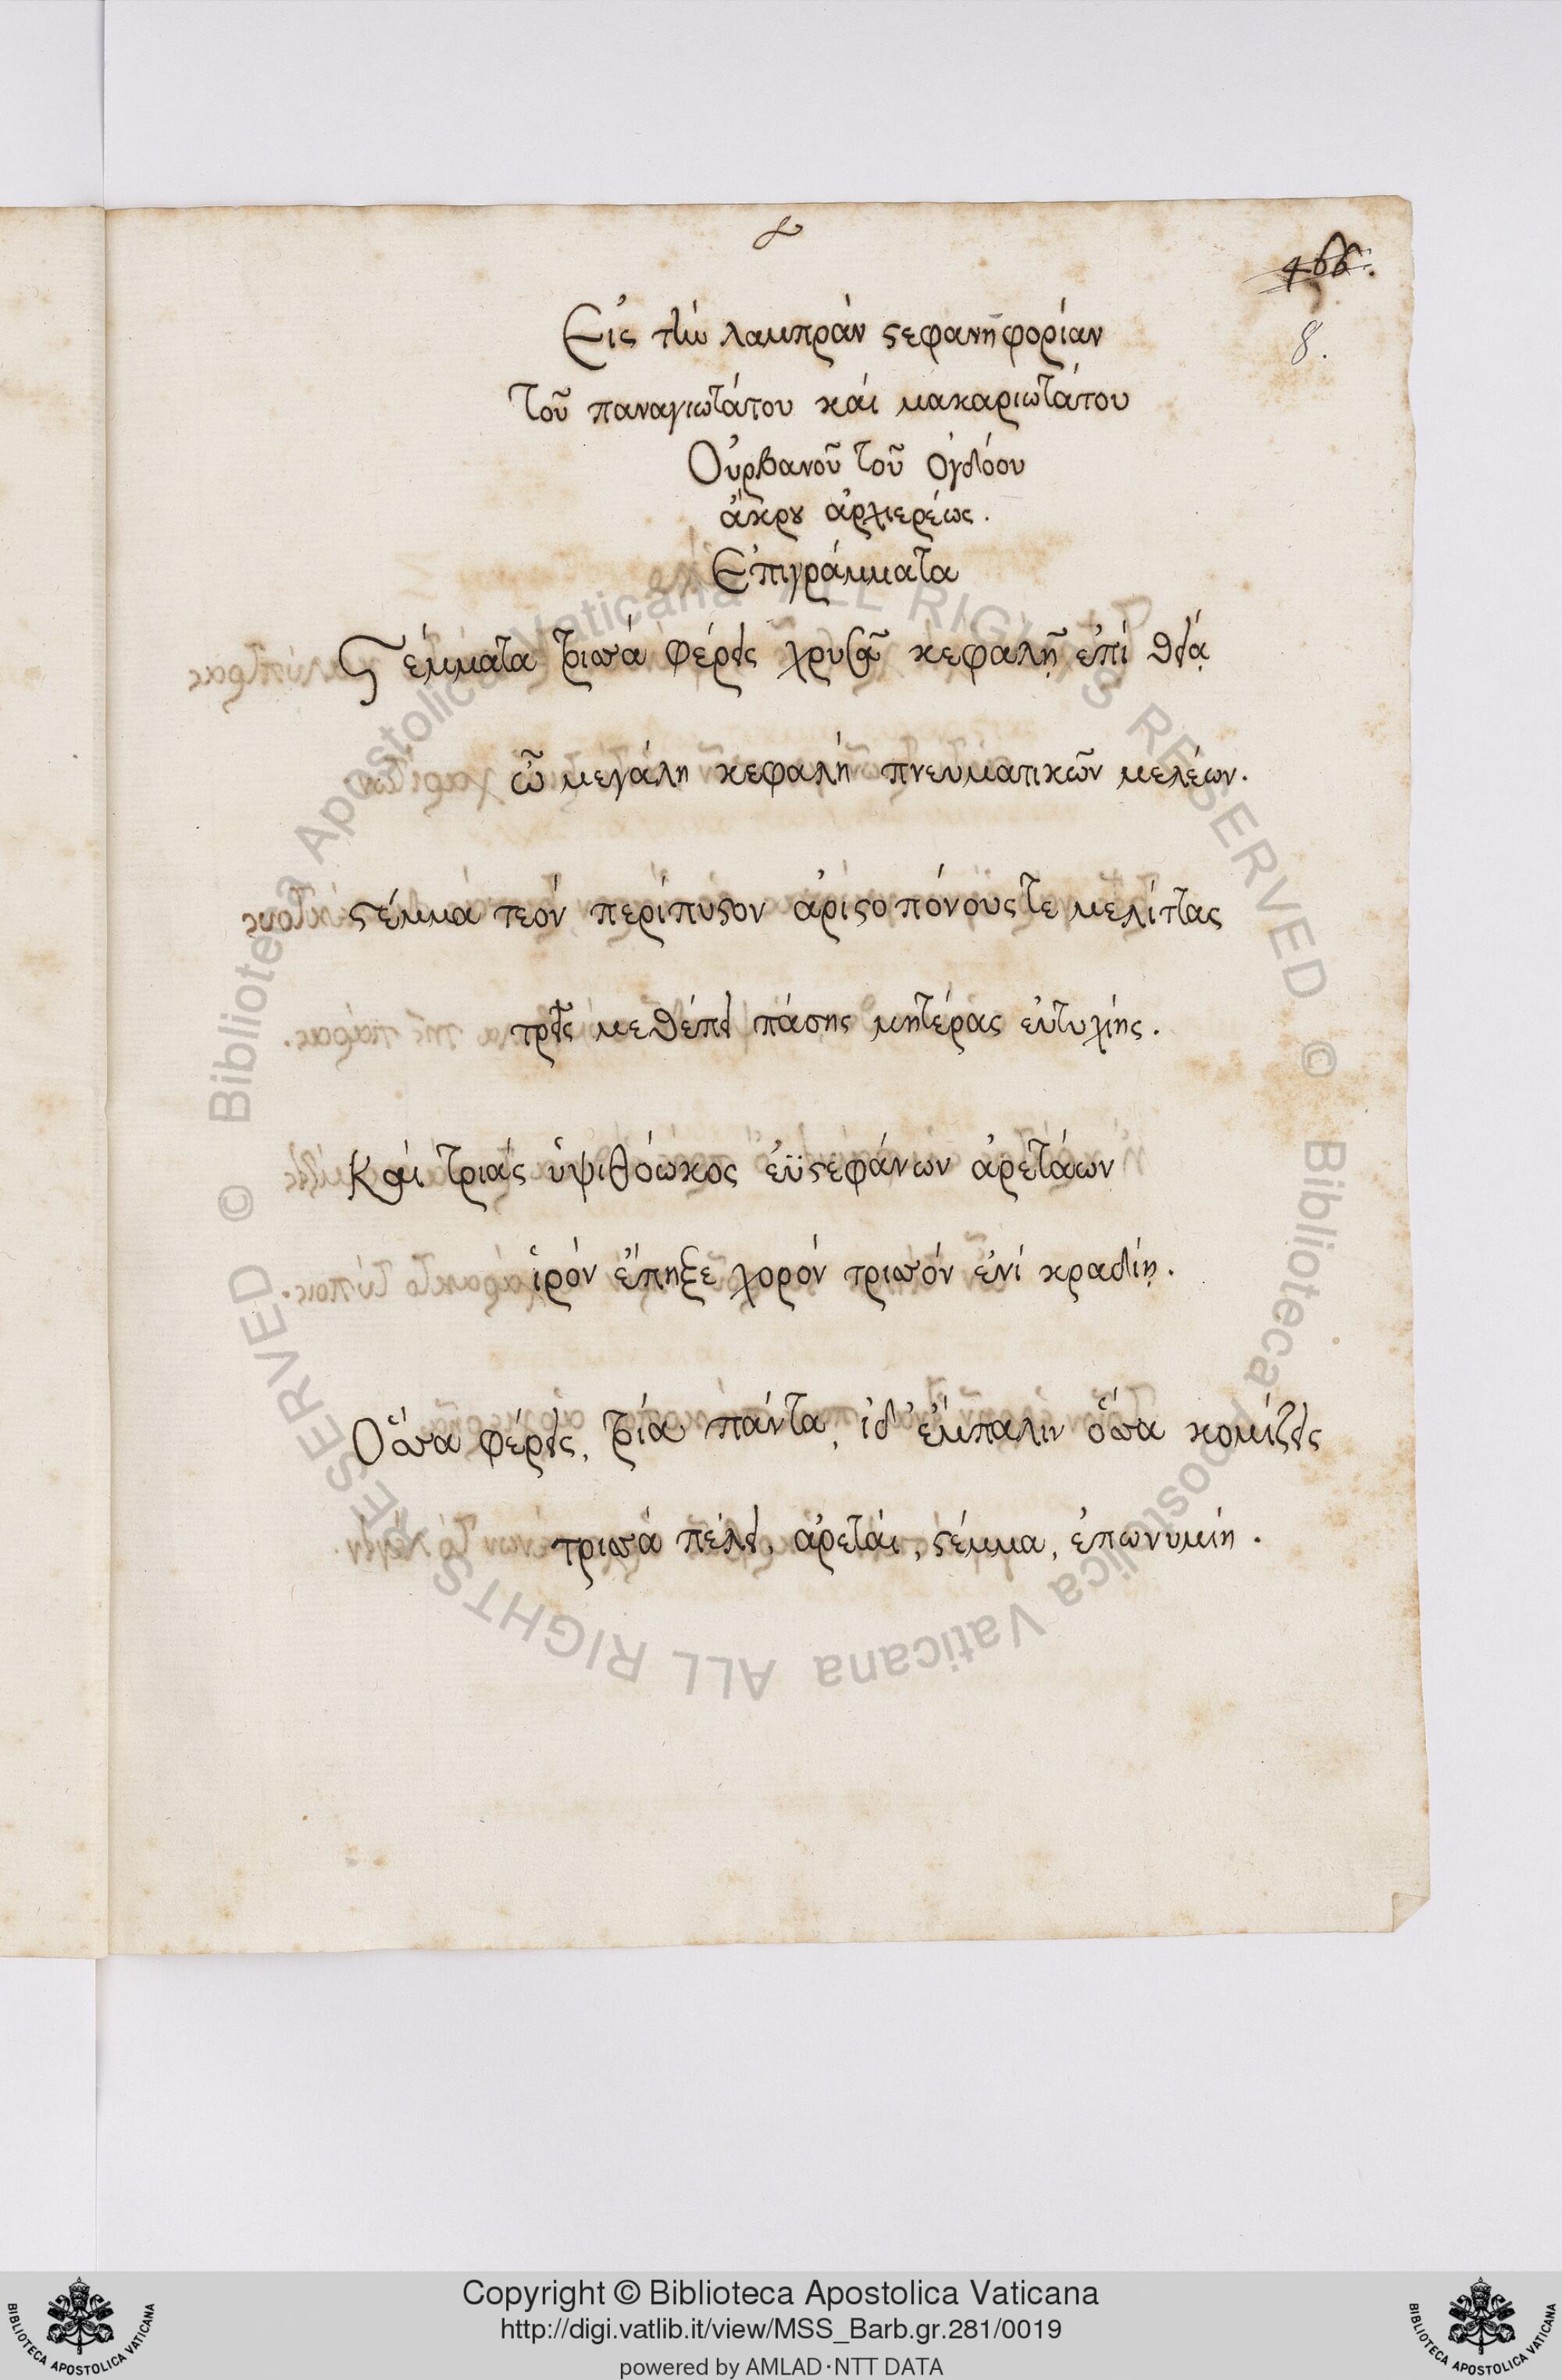 466.
8.
Εἰς τὴν λαμπρὰν στεφανηφορίαν
τοῦ παναγιωτάτου καὶ μακαριωτάτου
Οὐρβανοῦ τοῦ ὀγδόου
ἄκρου ἀρχιερέως.
Ἐπιγράμματα
Στέμματα τρισσὰ φέρεις χρυσᾶ κεφαλῇ ἐπὶ θείᾳ
ὦ μεγάλη κεφαλὴ πνευματικῶν μελέων.
στέμμα τεὸν περίπυστον ἀριστοπόνους τε μελίττας
τρεῖς μεθέπει πάσης μητέρας εὐτυχίης.
Καὶ τριὰς ὑψιθόωκος ἐϋστεφάνων ἀρετάων
ἱρὸν ἔπηξε χορὸν τρισσὸν ἐνὶ κραδίῃ.
Ὅσσα φέρεις, τρία πάντα, ἰδ' ἔμπαλιν ὅσσα κομίζεις
τρισσὰ πέλει, ἀρεταὶ, στέμμα, ἐπωνυμίη.
Biblioteca Apostolica Vaticana ALL RIGHTS RESERVED ©
Biblioteca Apostolica Vaticana ALL RIGHTS RESERVED ©
Copyright © Biblioteca Apostolica Vaticana
http://digi.vatlib.it/view/MSS_Barb.gr.281/0019
powered by AMLAD·NTT DATA
BIBLIOTECA APOSTOLICA VATICANA
BIBLIOTECA APOSTOLICA VATICANA